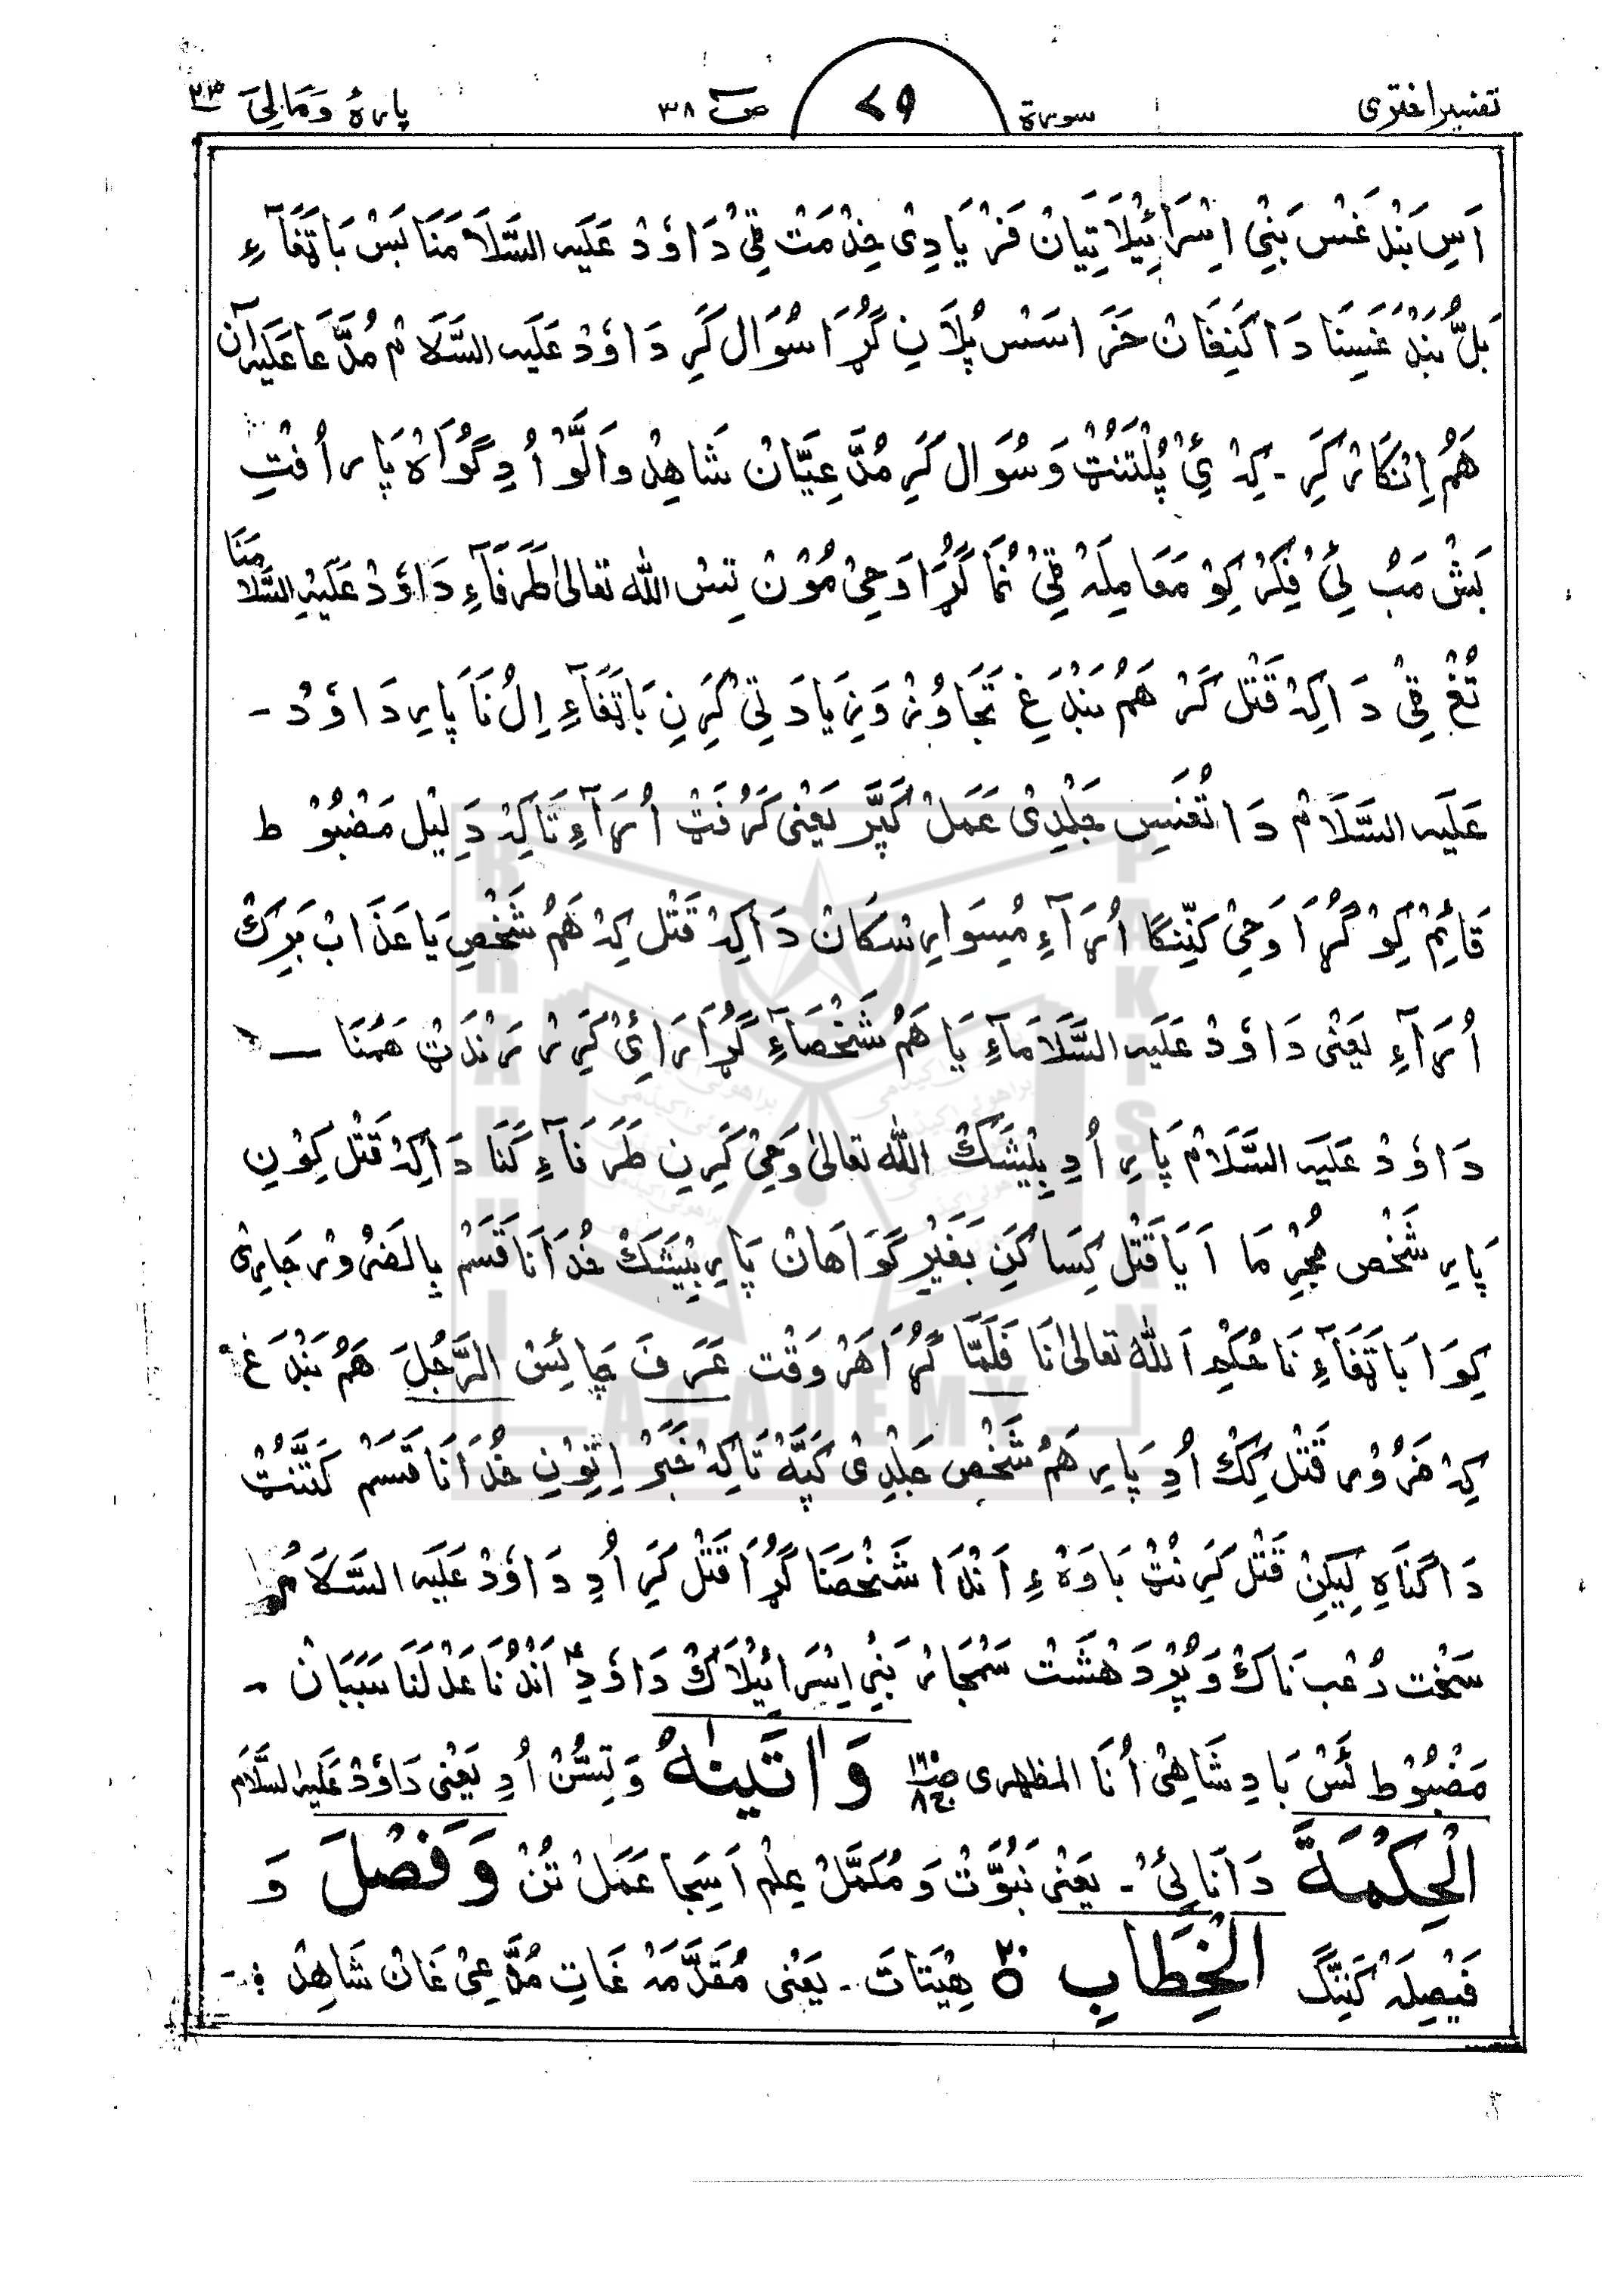 تفسیر اختری سورۃ ۷۹ صٓ ۳۸ پارۂ وَمَالِیَ ۲۳
اَسِ بَنْدَغَسْ بَنِیْ اِسْرَائِیْلَاتِیَانْ فَرْیَادِیْ خِدْمَتْ ٹِیْ دَاوٗدْ عَلَیہِ السَّلَامَنَا بَسْ بَاتَفَآءِ
بَلُّ بَنْدَغَسِنَا دَاکَنِفَانْ خَرَاسَسْ پُلَانِ گُڑَا سُوَال کَرِ دَاوٗدْ عَلَیہِ السَّلَامْ مُدَّعَا عَلَیہِ آن
هَمْ اِنْکَارْ کَرِ ـ کِہْ ئِیْ پُلْتَنُٹْ وَ سُوَال کَرِ مُدَّعِیَّانْ شَاهِدْ وَالَّوْ اُدِ گُوَاہْ پَارِ اُفْتِ
بَشْ مَبُ ئِیْ فِکَرْ کِوْ مَعَامِلَہْ ٹِیْ نُمَا گُڑَا وَحِیْ مُوْنْ تِسْ اللّٰہ تعالیٰ طَرَفَآءِ دَاوٗدْ عَلَیْہِ السَّلَامَنَا
تُغْ ٹِیْ دَاکِہْ قَتْل کَرْ هَمُ بَنْدَغِ تَجَاوُزْ وَزِیَادَتِیْ کَرِنِ بَاتَفَآءِ اِلُ نَا پَارِ دَاوٗدْ ـ
عَلَیہِ السَّلَامْ دَا تُغَسِ جَلْدِیْ عَمَلْ کَپَّر یَعْنِیْ کَرُفَٹْ اُرَآءِ تَاکِہْ دَلِیْل مَضْبُوْط
قَائِمْ کِوْ گُڑَا وَحِیْ کَنِّنْگَا اُرَآءِ مُسِوَارِ نْسکَانْ دَاکِہْ قَتْل کِہْ هَمُ شَخْصِ یَا عَذَابْ بَرِکْ
اُرَآءِ یَعْنِیْ دَاوٗدْ عَلَیہِ السَّلَامَآءِ یَا هَمُ شَخْصَآءِ گُڑَا رَائِیْ کَرِرْ رَنْدَٹْ هَمُنَا —
دَاوٗدْ عَلَیہِ السَّلَامْ پَارِ اُدِ بِیْشَکْ اللّٰہ تعالیٰ وَحِیْ کَرِنِ طَرَفَآءِ کَنَا دَاکِہْ قَتْل کِوْنِ
پَارِ شَخْص مُجْرِمَا اَیَا قَتْل کِسَا کَنِ بَغَیْرِ گَوَاهَانْ پَارِ بِیْشَکْ خُدَانَا قَسَمْ بِالضَرُوْر جَارِیْ
کِوَ ا بَاتَفَآءِ نَا حُکْمِ اَللّٰہ تَعَالیٰ نَا فَلَمَّا گُڑَا هَرْ وَقْت عَرَفَ چَائِسْ الرَّجُلَ هَمُ بَنْدَغ
کِہْ ضَرُوْر قَتْل کِکْ اُدِ پَارِ هَمُ شَخْص جَلْدِیْ کَپَّہْ تَاکِہْ خَبَرْ اِتِوْنِ خُدَانَا قَسَمْ کَتَّنُٹْ
دَا گُنَاہِ لِیکِنْ قَتْل کَرِنُٹْ بَاوَہْ ءِ اَنْدَا شَخْصَنَا گُڑَا قَتْل کَرِ اُدِ دَاوٗدْ عَلَیہِ السَّلَامْ
سَخْت رُعْب نَاکْ وَپُرْ دَهْشَت سَمْجَارْ بَنِیْ اِسْرَائِیْلَاکْ دَاوٗدِ اَنْدُنَا عَدْلَنَا سَبَبَانْ ـ
مَضْبُوْط ئَسْ بَادِشَاهِیْ اُنَا المظہری صفحہ ۱۶۰ ج ۸ وَاٰتَیْنٰہُ وَتِسُّنْ اُدِ یَعْنِیْ دَاوٗدْ عَلَیہِ السَّلَامْ
الْحِکْمَۃَ دَانَائِیْ ـ یَعْنِیْ نَبُوَّتْ وَ مُکَمَّلْ عِلْم اَسِجَا عَمَلْ تُنْ وَفَصْلَ وَ
فَیْصِلَہْ کَنِنْگ الْخِطَابِ ۲۰ هِیْتَاتَ ـ یَعْنِیْ مُقَدَّمَہْ غَاتِ مُدَّعِیْ غَانْ شَاهِدْ
BRAHUI ACADEMY PAKISTAN